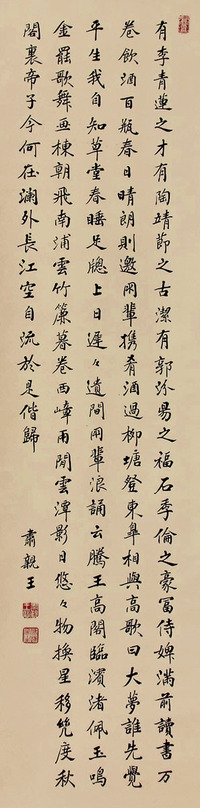 有李青蓮之才有陶靖節之古潔有郭汾昜之福石季倫之豪冨侍婢滿前讀書万
卷飲酒百瓶春日晴朗則邀朋輩携肴酒過柳塘登東皐相與高歌曰大夢誰先覺
平生我自知草堂春睡足牕上日遲々遣問朋輩浪誦云騰王高閣臨濱渚佩玉鳴
金罷歌舞画棟朝飛南浦雲竹簾暮卷西峰雨閒雲潭影日悠々物換星移凢度秋
閣裏帝子今何在瀾外長江空自流於是偕歸
肅親王